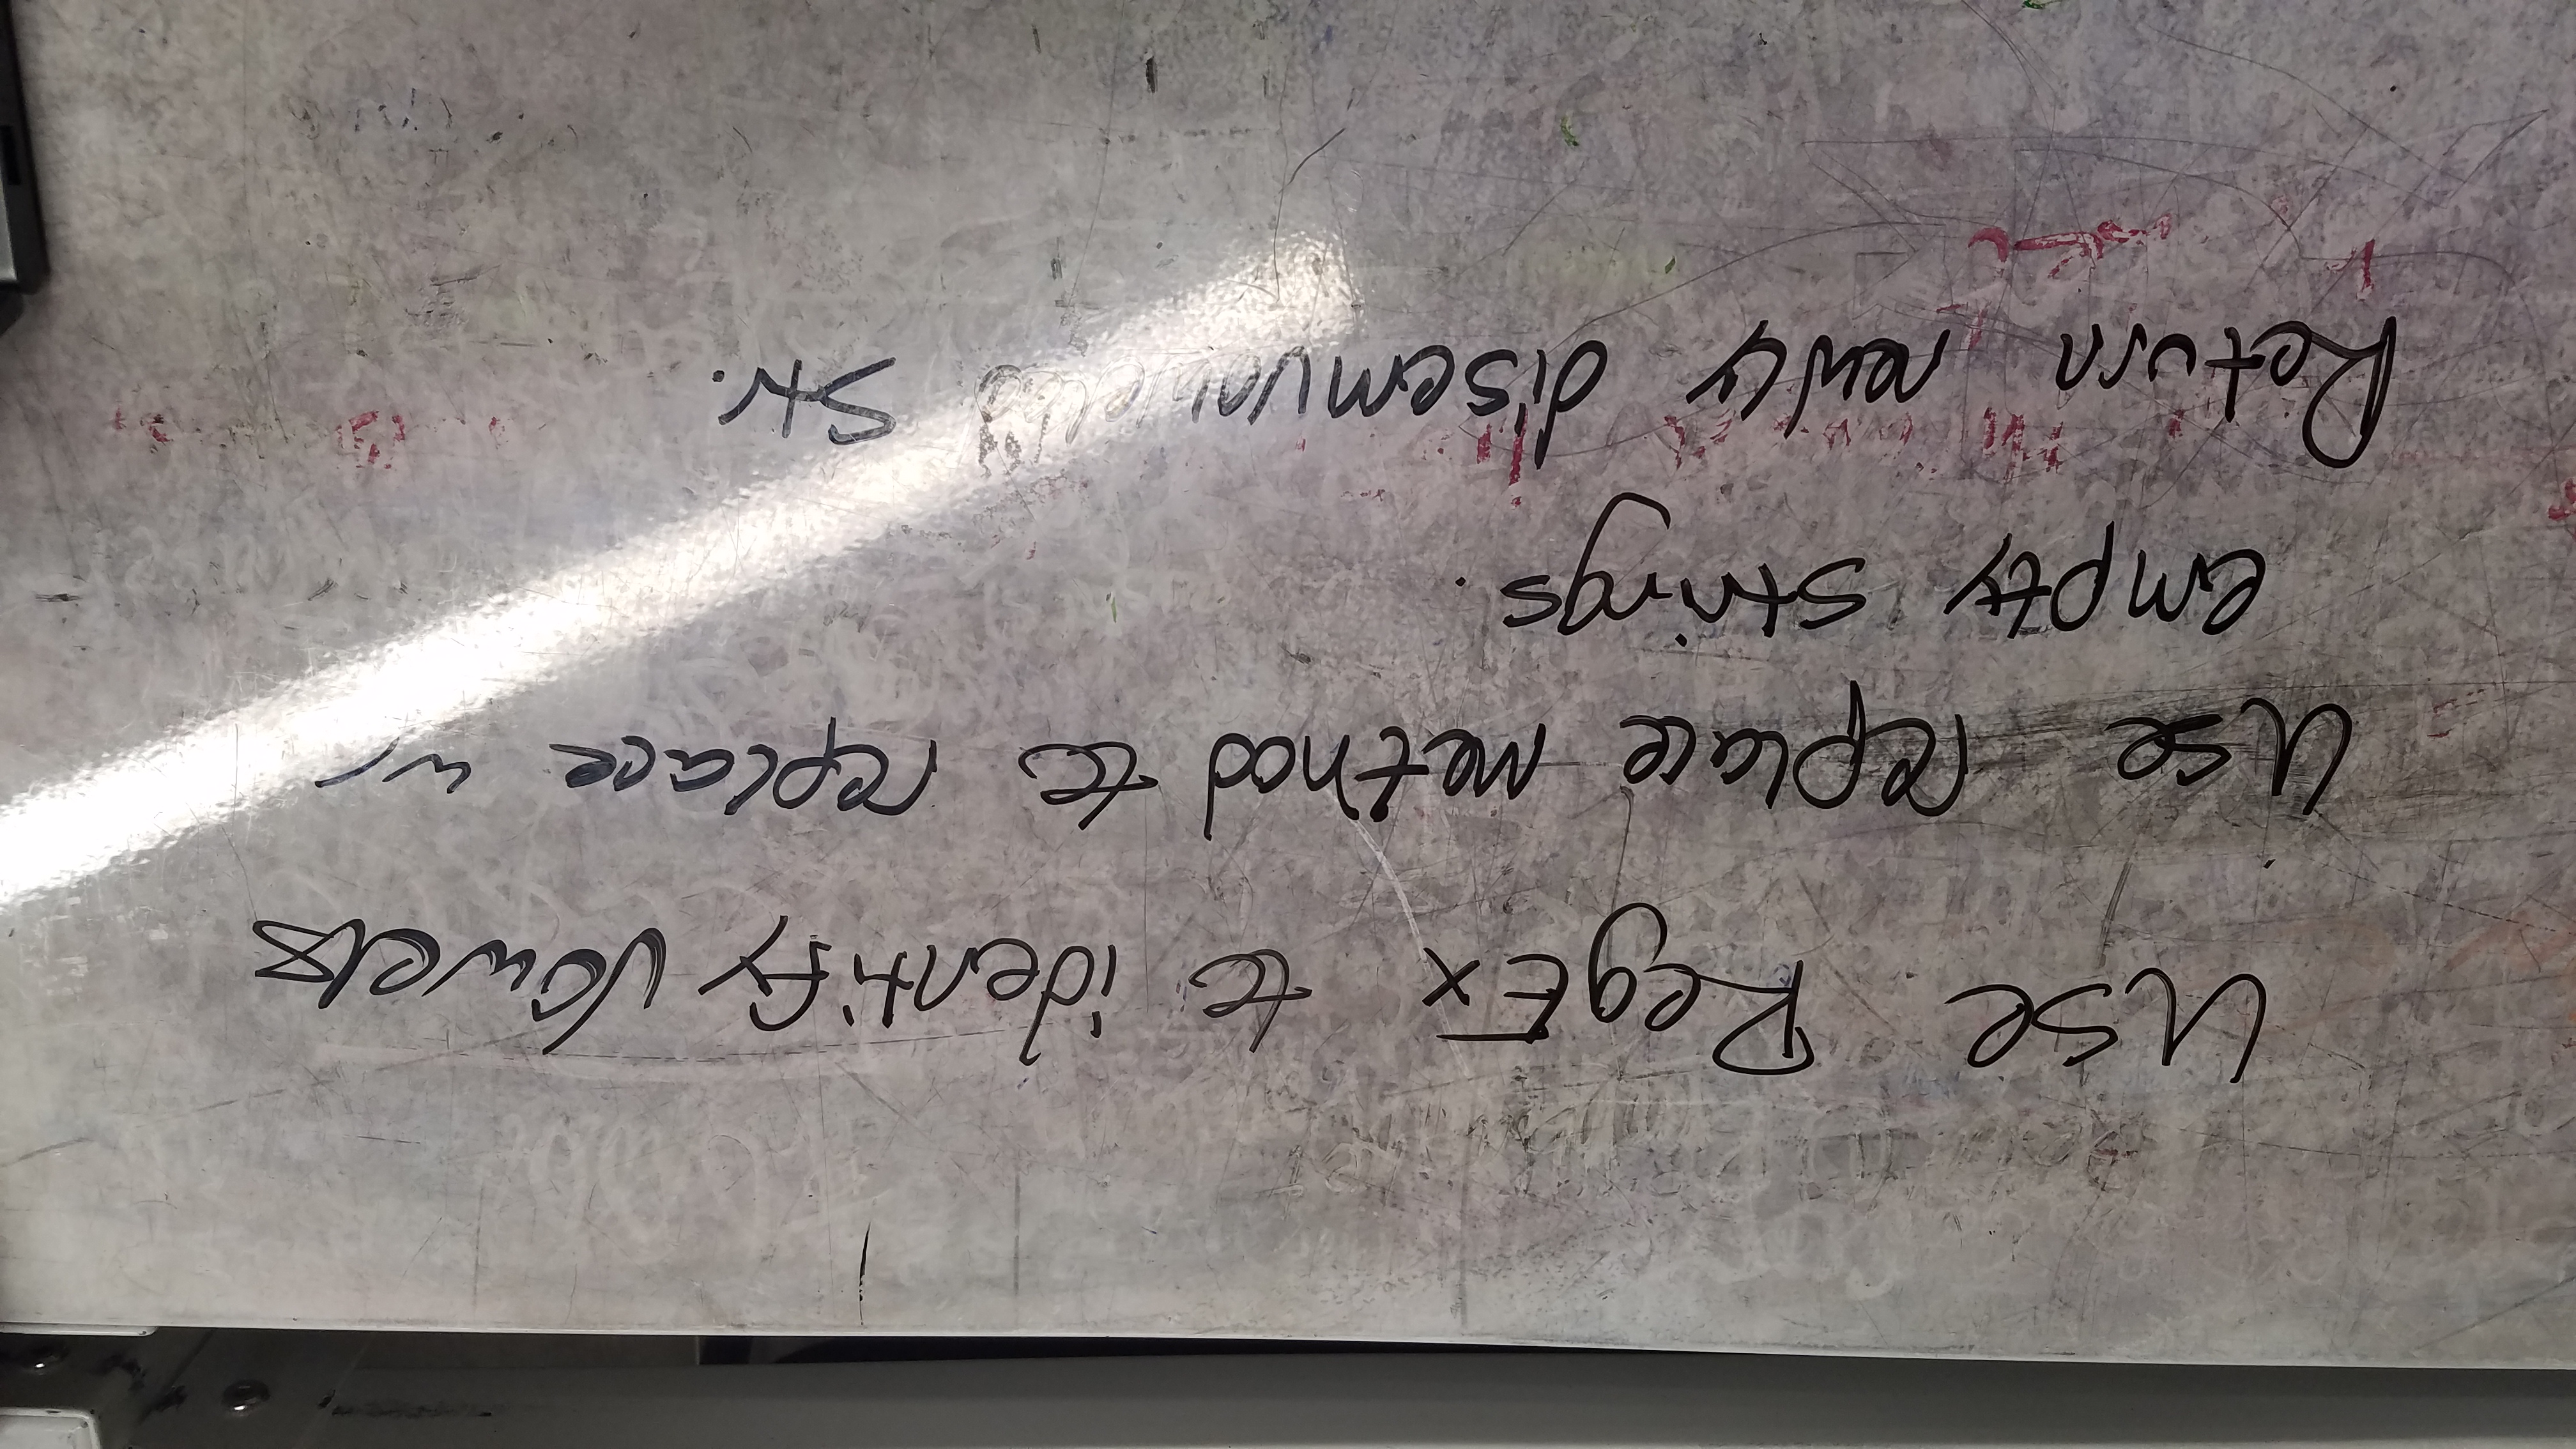 Use RegEx to identify Vowels
Use replace method to replace w/
empty strings.
Return newly disemvoweled Str.